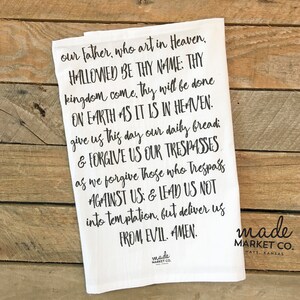 our Father, who art in Heaven,
HALLOWED BE THY NAME; THY
kingdom come, thy will be done
ON EARTH AS IT IS IN HEAVEN.
give us this day our daily bread;
& FORGIVE US OUR TRESPASSES
as we forgive those who trespass
AGAINST US; & LEAD US NOT
into temptation, but deliver us
FROM EVIL. AMEN.
made
MARKET CO.
made
MARKET CO.